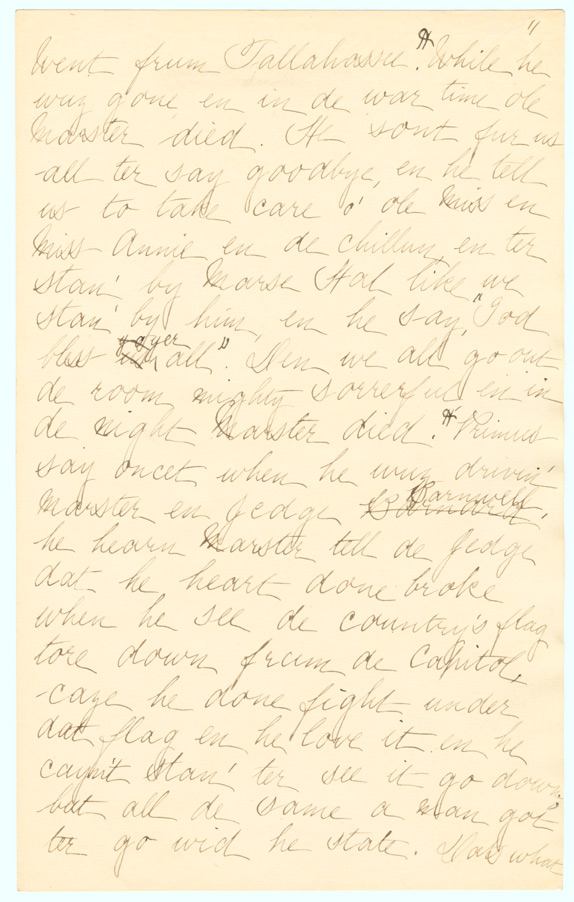 "
Went frum Tallahassee. While he
wuz gone en in de war time ole
Marster died. He sont fur us
all ter say goodbye, en he tell
us to take care o' ole Miss en
Miss Annie en de chillun, en ter
stan' by Marse Hal like we
stan' by him, en he say, "God
bless yoyer all". Den we all go out
de room mighty sorrerful en in
de night Marster died. Primus
say oncet when he wuz drivin'
Marster en Jedge Barnwell,
he hearn Marster tell de Jedge
dat he heart done broke
when he see de country's flag
tore down frum de Capitol,
-caze he done fight under
dat flag en he love it en he
cayn't stan' ter see it go down
but all de same a man got
ter go wid he state. Dats what